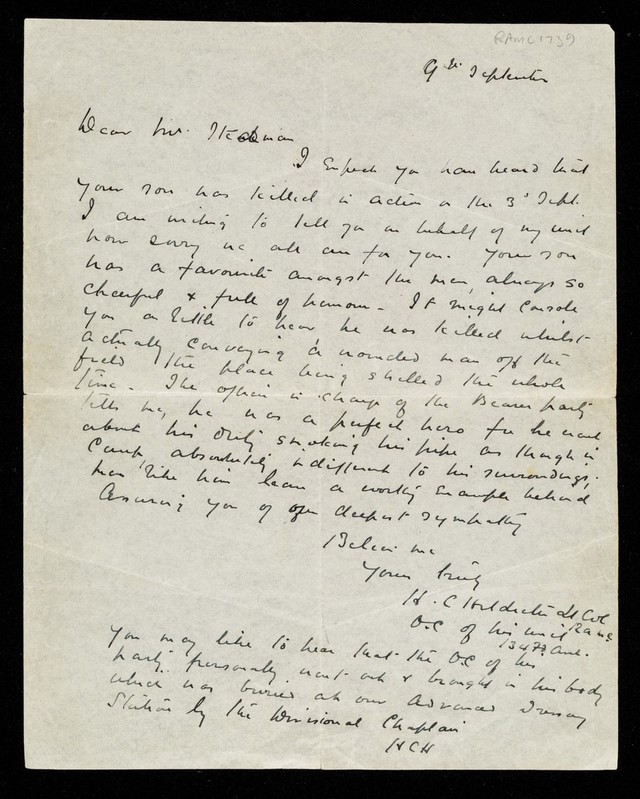 RAMC 1739
9th September
Dear Mrs. Steadman
I expect you have heard that
your son was killed in action on the 3d Sept.
I am writing to tell you on behalf of my unit
how sorry we all are for you. Your son
was a favourite amongst the men, always so
cheerful & full of humour. It might console
you a little to hear he was killed whilst
actually conveying a wounded man off the
field the place being shelled the whole
time. The officer in charge of the Bearer party
tells me, he was a perfect hero for he went
about his duty smoking his pipe as though in
camp, absolutely indifferent to his surroundings;
men like him leave a worthy example behind
Assuring you of our deepest sympathy
Believe me
Yours truly
H. C Lt Col
O.C of his unit RAMC
Amb.
You may like to hear that the O.C of his
party personally went out & brought in his body
which was buried at our Advanced Dressing
Station by the Divisional Chaplain
HCH